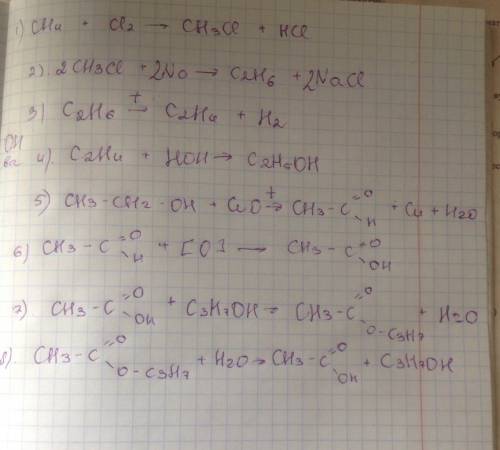 1) CH4 + Cl2 → CH3Cl + HCl
2). 2CH3Cl + 2Na → C2H6 + 2NaCl
3) C2H6 →t C2H4 + H2
OH
4). C2H4 + HOH → C2H5OH
5) CH3-CH2-OH + CuO →t CH3-C=O H + Cu + H2O
6) CH3-C=O H + [O] → CH3-C=O OH
7) CH3-C=O OH + C3H7OH → CH3-C=O O-C3H7 + H2O
8). CH3-C=O O-C3H7 + H2O → CH3-C=O OH + C3H7OH